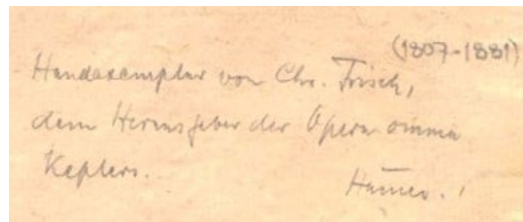 (1807-1881)
Handexemplar von Chr. Frisch,
dem Herausgeber der Opera omnia
Keplers.